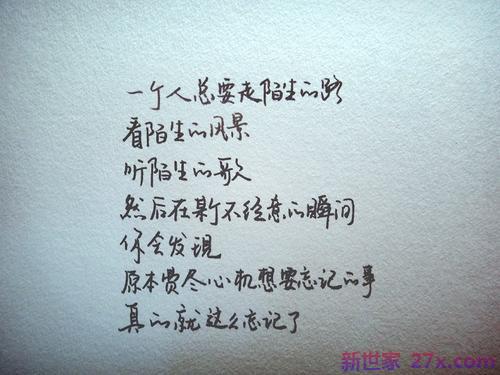 一个人总要走陌生的路
看陌生的风景
听陌生的歌
然后在某个不经意的瞬间
你会发现
原本费尽心机想要忘记的事
真的就这么忘记了
新世家 27x.com